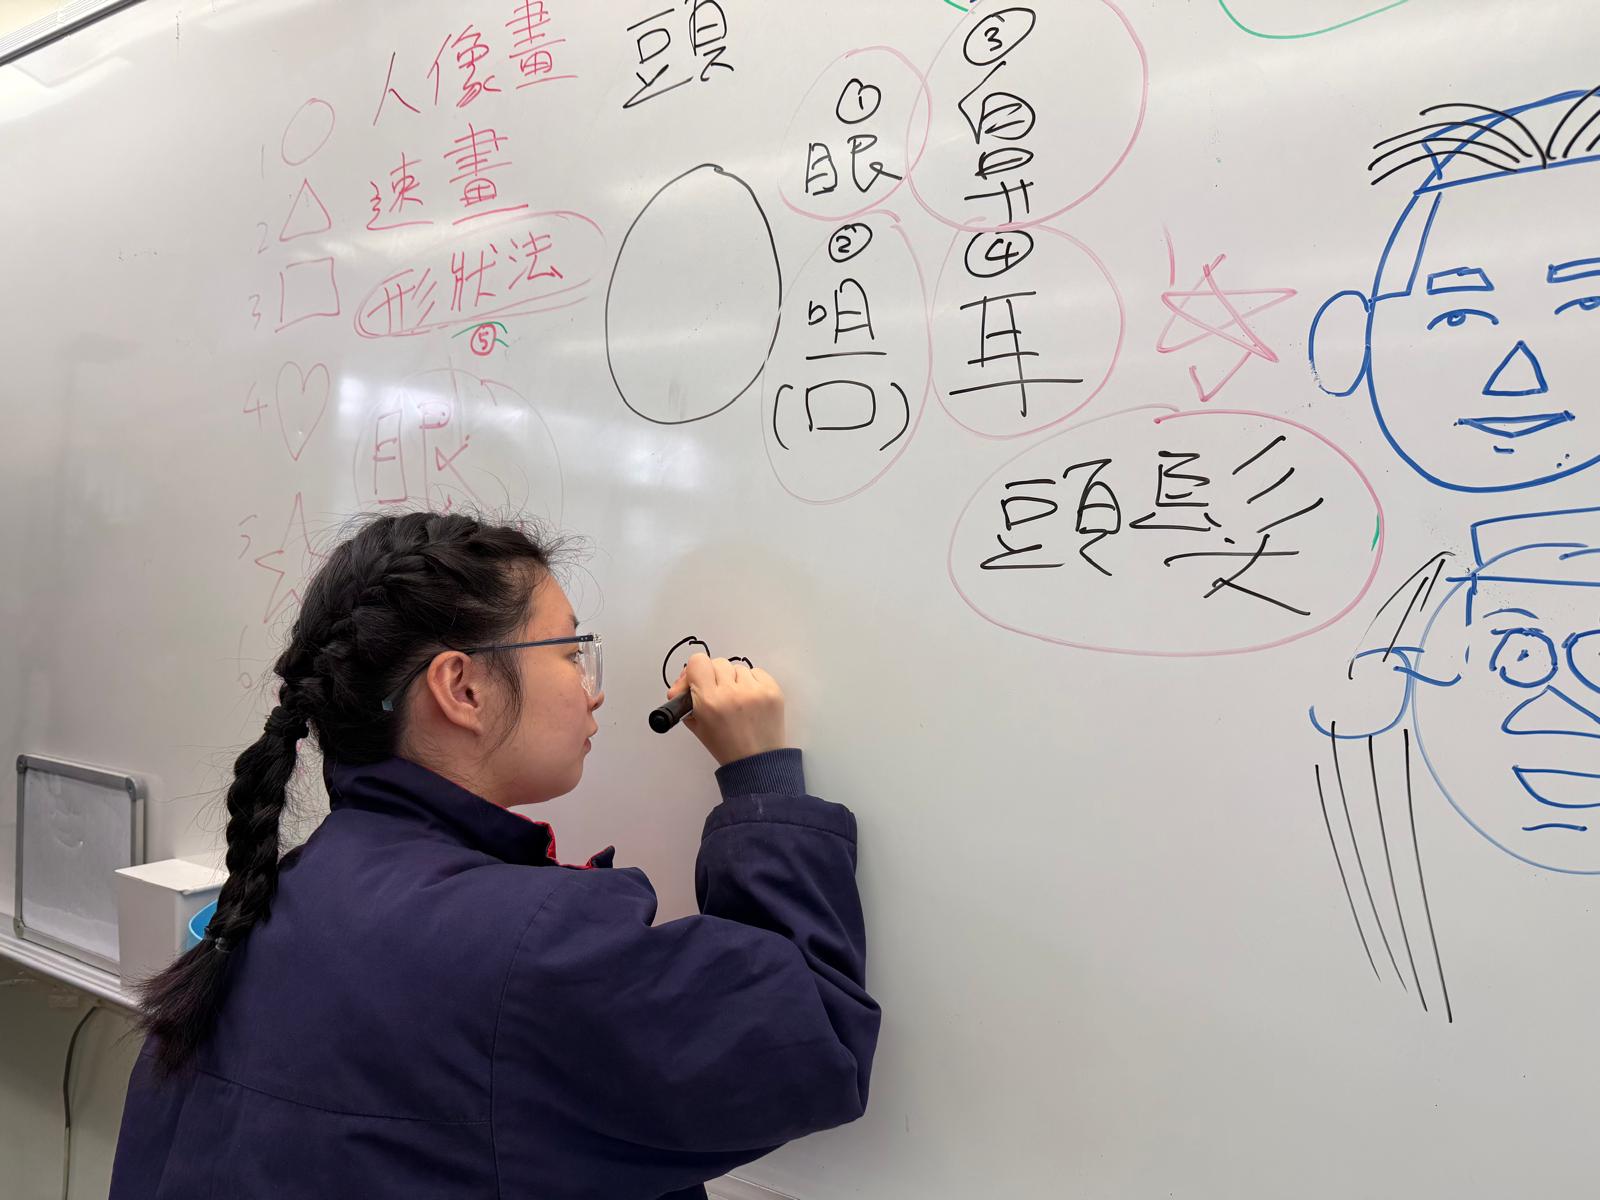 人像畫
速畫
形狀法
⑤
眼
1
2
3
4
5
6
頭
①
眼
②
咀
(口)
③
鼻
④
耳
頭髮